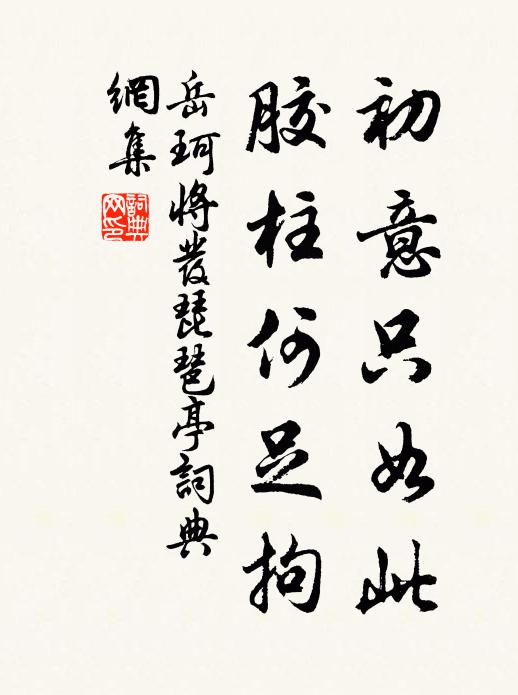 初意只如此
膠柱何足拘
岳珂將發琵琶亭詞典
網集
詞典
网印